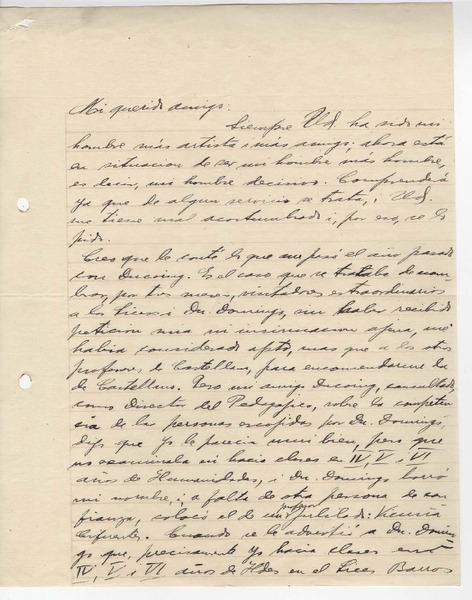 Mi querido amigo:
Siempre Ud. ha sido mi
hombre más artista i más amigo; ahora está
en situacion de ser un hombre más hombre,
es decir, un hombre decisivo. Comprenderá
ya que de algun servicio se trata, i Ud.
me tiene mal acostumbrado i, por eso, se lo
pido.
Creo que le conté lo que me pasó el año pasado
con Ducoing. Es el caso que se trataba de nom-
brar, por tres meses, visitadores estraordinarios
a los liceos i Dn. Domingo, sin haber recibido
peticion mia ni insinuacion ajena, me
habia considerado apto, mas que a los otros
profesores de Castellano, para encomendarme la
de Castellano. Pero mi amigo Ducoing, consultado,
como Director del Pedagójico, sobre la competen-
cia de las personas escojidas por Dn. Domingo,
dijo que yo le parecia mui bien, pero que
no examinaba ni hacia clases en IV, V i VI
años de Humanidades, i Dn. Domingo borró
mi nombre, i, a falta de otra persona de con-
fianza, colocó el de un profesor jubilado:
Cifuentes. Cuando se le advertió a Dn. Domin-
go que, precisamente yo hacia clases en
IV, V i VI años de Hdes en el Liceo Barros